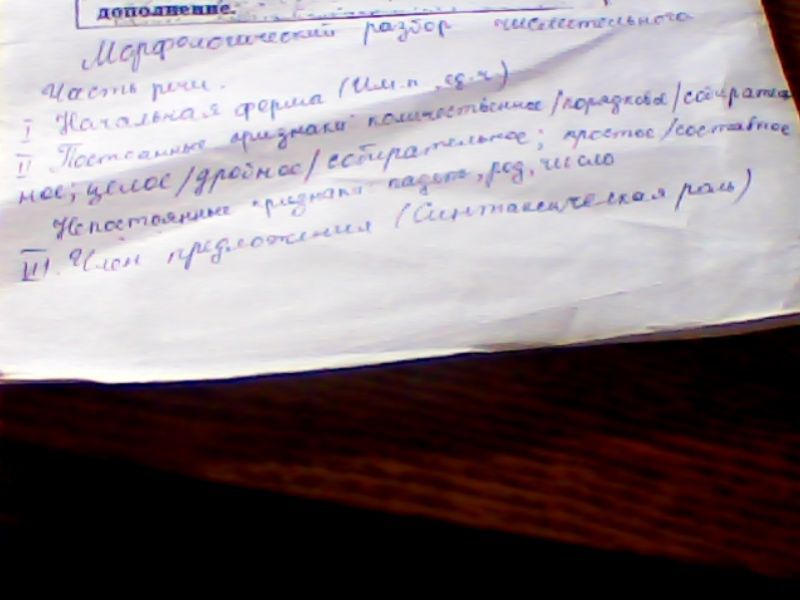 дополнение.
Морфологический разбор числительного
Часть речи.
I Начальная форма (Им.п., ед.ч.)
II Постоянные признаки количественное/порядковое/собиратель
ное; целое/дробное/собирательное; простое/составное
Непостоянные признаки падеж, род, число
III. Член предложения (Синтаксическая роль)